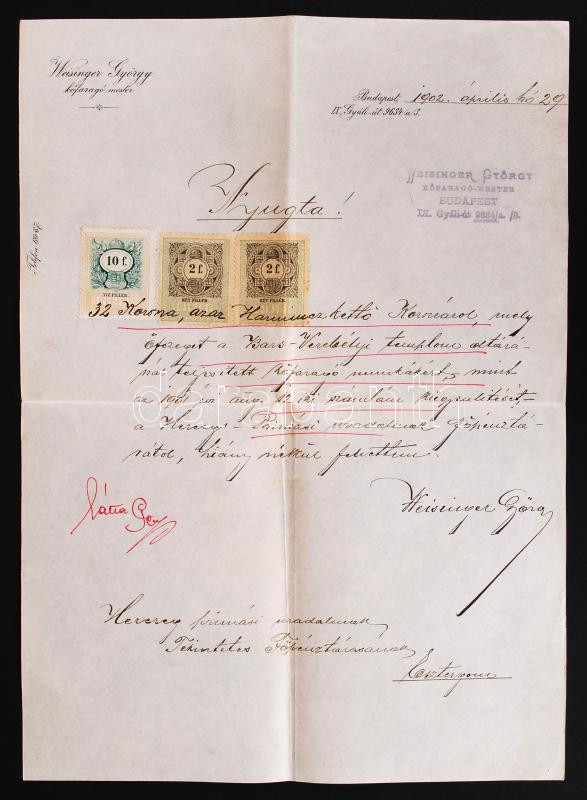 Weisinger György
kőfaragó mester
Budapest, 1902. április hó 29
IX. Gyáli-út 9634/a. 3.
WEISINGER GYÖRGY
KŐFARAGÓ-MESTER
BUDAPEST
IX. Gyáli-út 9634/a. /3.
Nyugta!
10 f.
TIZ FILLER.
2 f.
KÉT FILLER.
2 f.
KÉT FILLER.
32 Korona, azaz Harminczkettő Koronáról, mely
összeget a Bars-Verebélyi templom oltárá-
nál teljesített kőfaragó munkákért, mint
az 1901 évi aug. 12 iki számlám kiegyenlítését
a Herczeg-Primási uradalmak főpénztá-
rától, hiány nélkül felvettem.
Weisinger György
Herczeg primási uradalmak
Tekintetes Főpénztárásának
Esztergom
darabanth